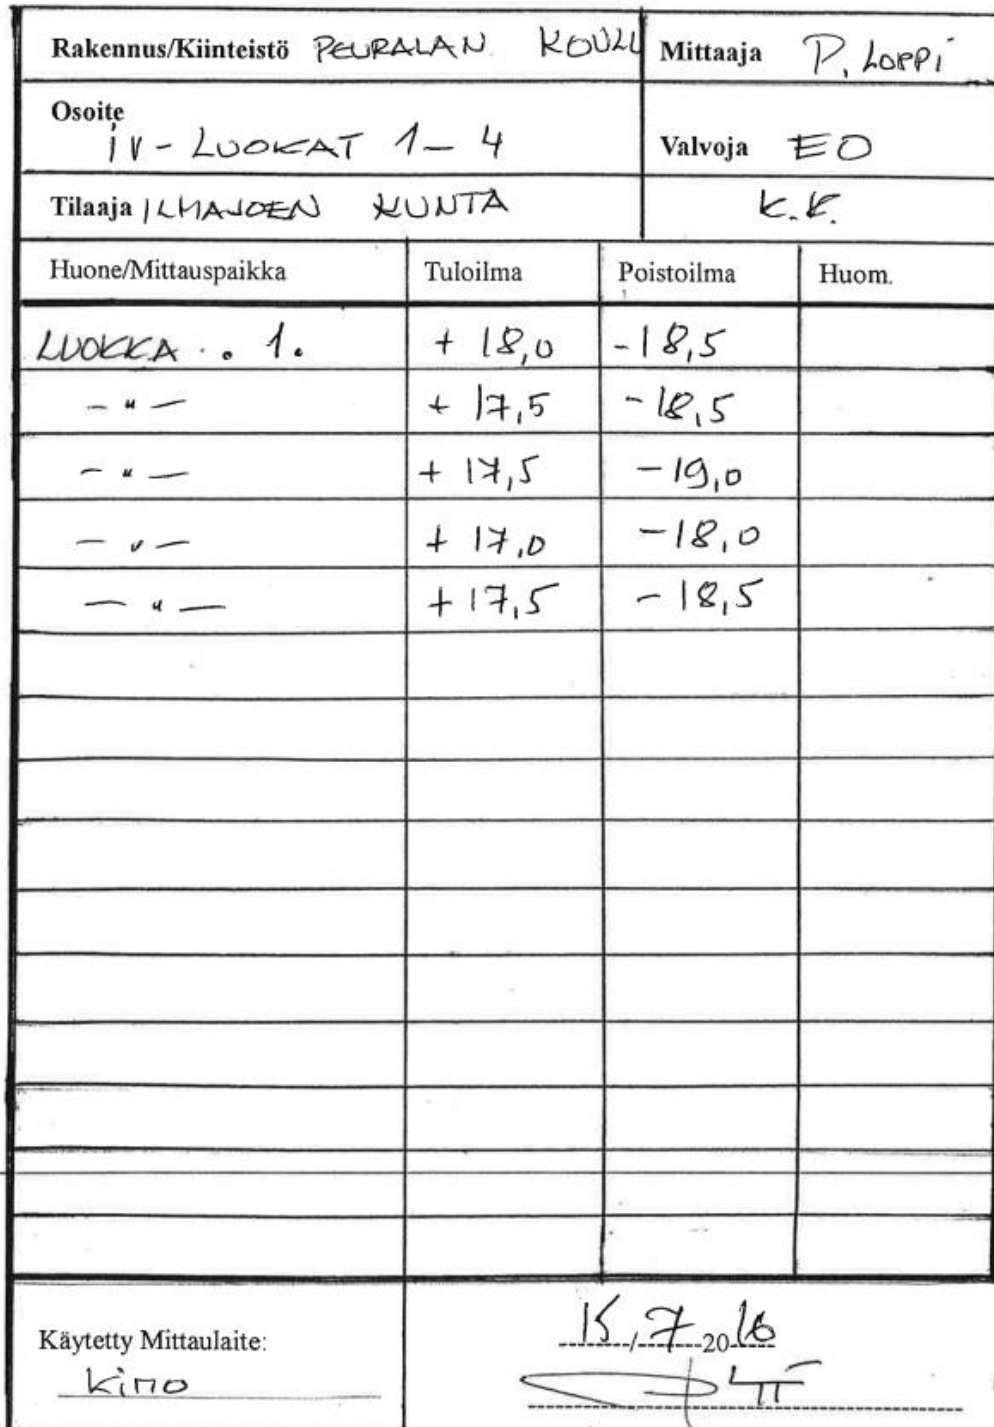 Rakennus/Kiinteistö PEURALAN KOULU Mittaaja P. LOPPI
Osoite
IV - LUOKAT 1 - 4 Valvoja EO
Tilaaja ILMAJOEN KUNTA K.K.
Huone/Mittauspaikka Tuloilma Poistoilma Huom.
LUOKKA . . 1. + 18,0 -18,5
- " - + 17,5 -18,5
- " - + 17,5 -19,0
- " - + 17,0 -18,0
- " - + 17,5 -18,5
Käytetty Mittaulaite: 15/7 2016
kimo